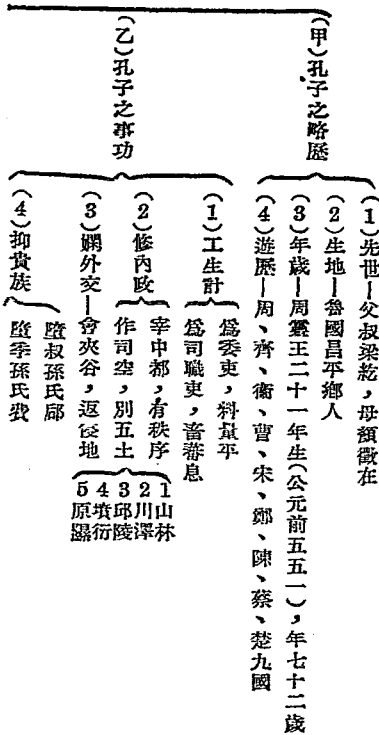 (甲)孔子之略歷
(1)先世—父叔梁紇，母顏徵在
(2)生地—魯國昌平鄉人
(3)年歲—周靈王二十一年生(公元前五五一)，年七十二歲
(4)遊歷—周、齊、衞、曹、宋、鄭、陳、蔡、楚九國
(乙)孔子之事功
(1)工生計
爲委吏，料量平
爲司職吏，畜蕃息
(2)修內政
宰中都，有秩序
作司空，別五土
1山林
2川澤
3邱陵
4墳衍
5原隰
(3)嫻外交—會夾谷，返侵地
(4)抑貴族
墮叔孫氏郈
墮季孫氏費